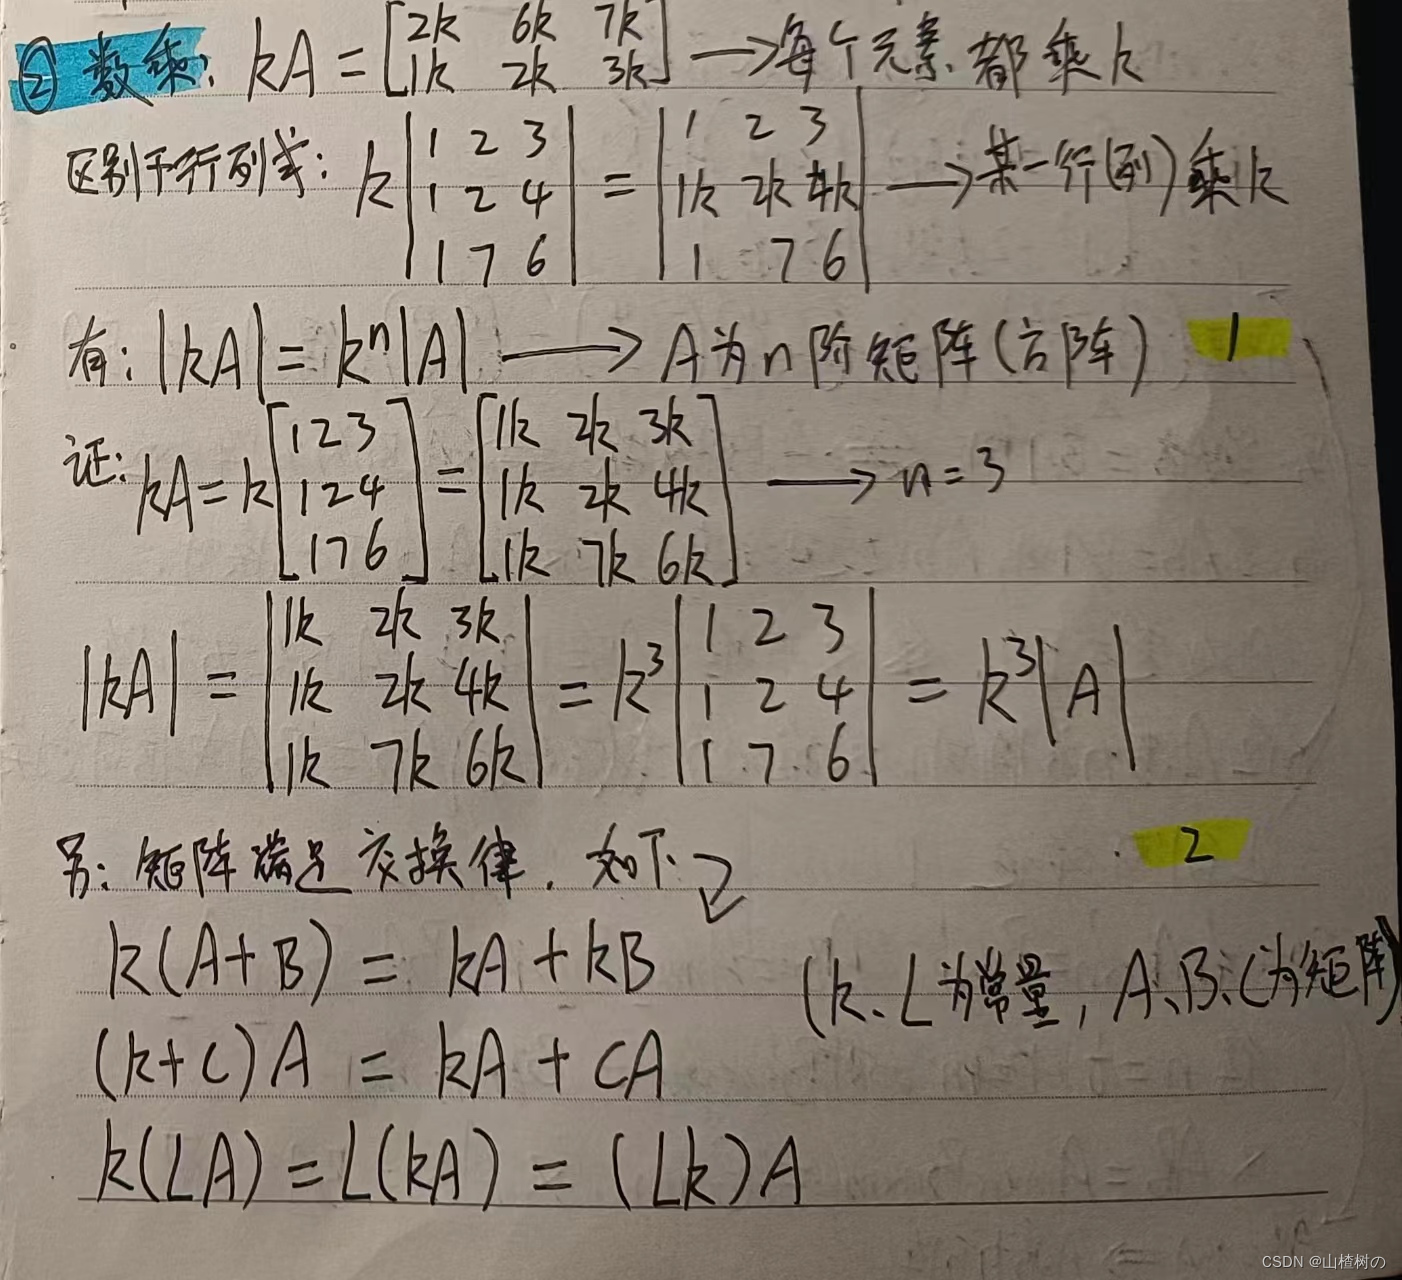 ② 数乘: kA = [2k 6k 7k; 1k 2k 3k] → 每个元素都乘k
区别于行列式: k|1 2 3; 1 2 4; 1 7 6| = |1 2 3; 1k 2k 4k; 1 7 6| → 某一行(列)乘k
有: |kA| = kⁿ|A| → A为n阶矩阵(方阵) 1
证: kA = k[1 2 3; 1 2 4; 1 7 6] = [1k 2k 3k; 1k 2k 4k; 1k 7k 6k] → n = 3
|kA| = |1k 2k 3k; 1k 2k 4k; 1k 7k 6k| = k³|1 2 3; 1 2 4; 1 7 6| = k³|A|
另: 矩阵满足交换律. 如下. 2
k(A+B) = kA + kB (k、L为常量, A、B、C为矩阵)
(k+C)A = kA + CA
k(LA) = L(kA) = (Lk)A
CSDN @山楂树の